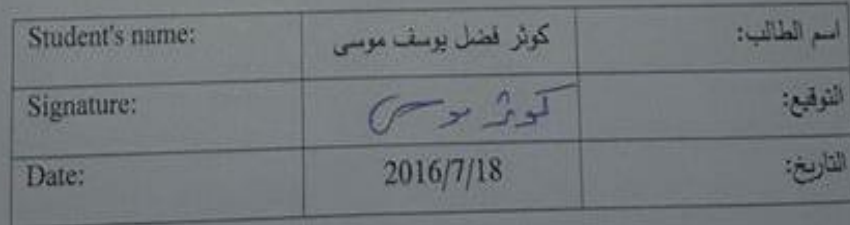 Student's name: كوثر فضل يوسف موسى اسم الطالب:
Signature: كوثر موسى التوقيع:
Date: 2016/7/18 التاريخ: